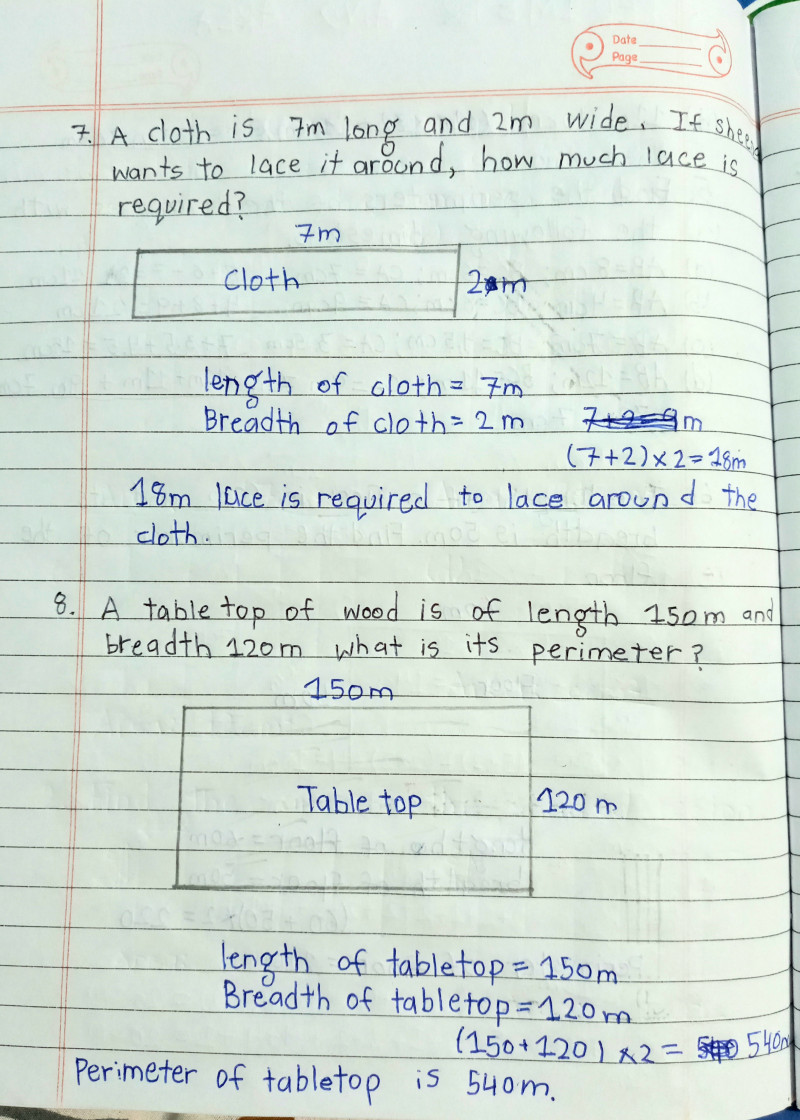 Date
Page
7. A cloth is 7m long and 2m wide. If sheena
wants to lace it around, how much lace is
required?
7m
cloth
2m
length of cloth = 7m
Breadth of cloth = 2 m 7+2=9m
(7+2)×2=18m
18m lace is required to lace around the
cloth.
8. A table top of wood is of length 150m and
breadth 120m what is its perimeter?
150m
Table top
120 m
length of tabletop = 150m
Breadth of tabletop = 120m
(150+120) ×2 = 540m
Perimeter of tabletop is 540m.